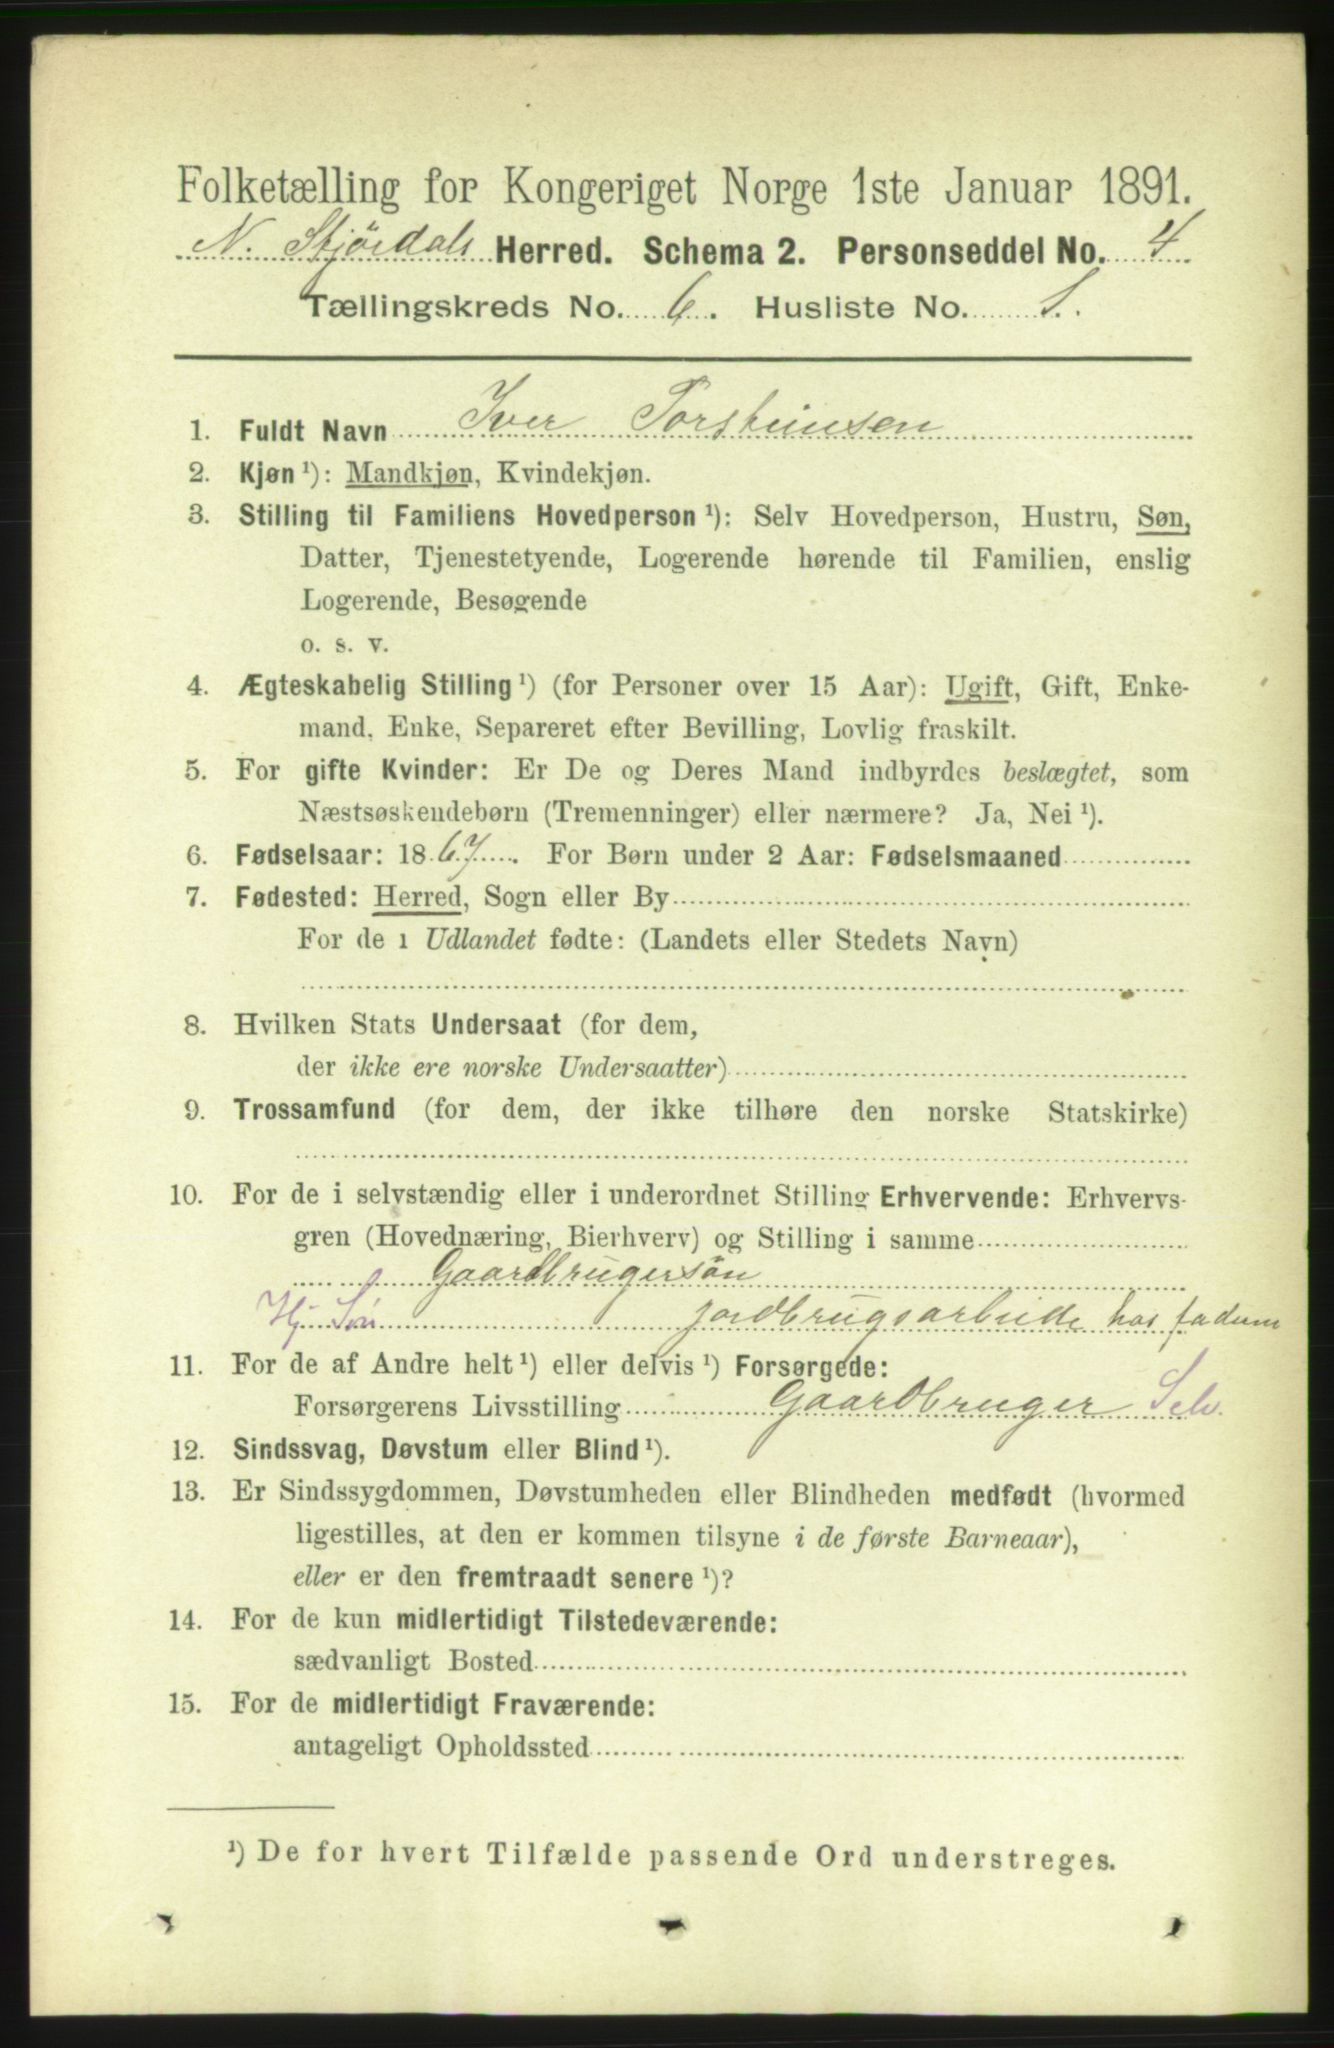 Folketælling for Kongeriget Norge 1ste Januar 1891.
N. Stjørdals Herred. Schema 2. Personseddel No. 4
Tællingskreds No. 6. Husliste No.
1. Fuldt Navn Iver Torsteinsen
2. Kjøn ¹): Mandkjøn, Kvindekjøn.
3. Stilling til Familiens Hovedperson ¹): Selv Hovedperson, Hustru, Søn,
Datter, Tjenestetyende, Logerende hørende til Familien, enslig
Logerende, Besøgende
o. s. v.
4. Ægteskabelig Stilling ¹) (for Personer over 15 Aar): Ugift, Gift, Enke-
mand, Enke, Separeret efter Bevilling, Lovlig fraskilt.
5. For gifte Kvinder: Er De og Deres Mand indbyrdes beslægtet, som
Næstsøskendebørn (Tremenninger) eller nærmere? Ja, Nei ¹).
6. Fødselsaar: 1867. For Børn under 2 Aar: Fødselsmaaned
7. Fødested: Herred, Sogn eller By
For de i Udlandet fødte: (Landets eller Stedets Navn)
8. Hvilken Stats Undersaat (for dem,
der ikke ere norske Undersaatter)
9. Trossamfund (for dem, der ikke tilhøre den norske Statskirke)
10. For de i selvstændig eller i underordnet Stilling Erhvervende: Erhvervs-
gren (Hovednæring, Bierhverv) og Stilling i samme
Gaardbrugersøn
Hj. Søn jordbrugsarbeide hos
11. For de af Andre helt ¹) eller delvis ¹) Forsørgede:
Forsørgerens Livsstilling Gaardbruger Selv.
12. Sindssvag, Døvstum eller Blind ¹).
13. Er Sindssygdommen, Døvstumheden eller Blindheden medfødt (hvormed
ligestilles, at den er kommen tilsyne i de første Barneaar),
eller er den fremtraadt senere ¹)?
14. For de kun midlertidigt Tilstedeværende:
sædvanligt Bosted
15. For de midlertidigt Fraværende:
antageligt Opholdssted
¹) De for hvert Tilfælde passende Ord understreges.